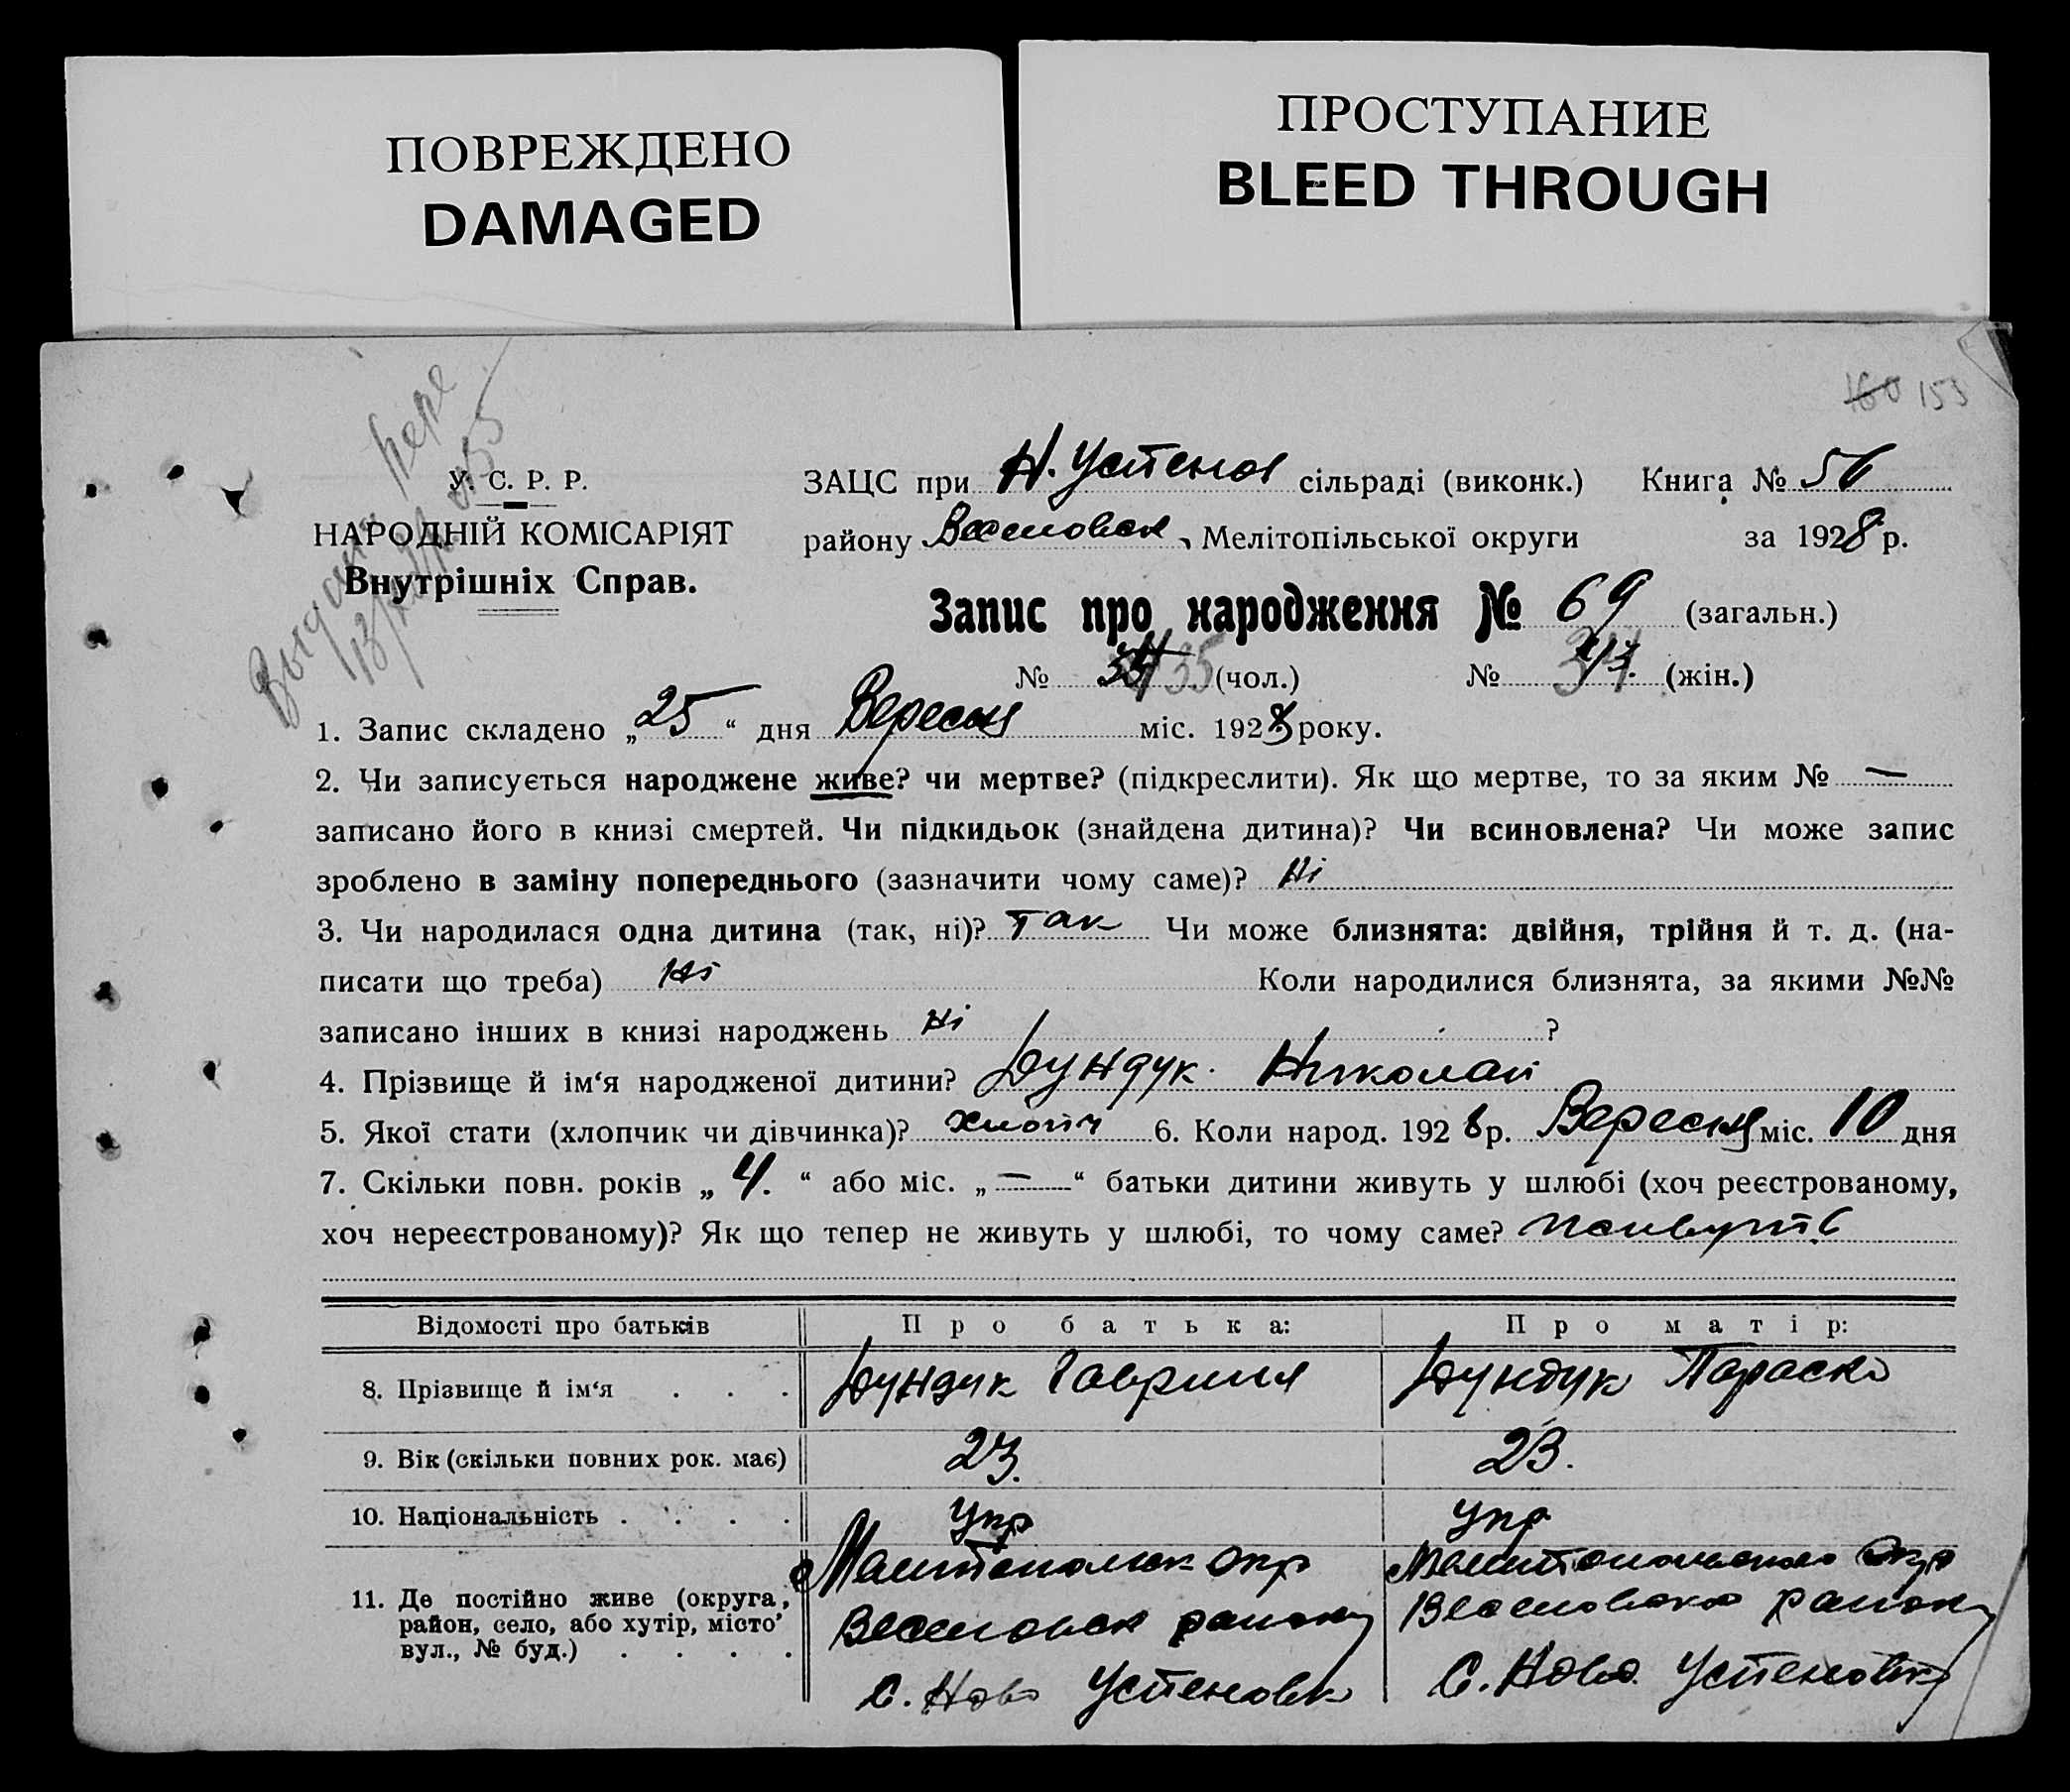 ПОВРЕЖДЕНО
DAMAGED
ПРОСТУПАНИЕ
BLEED THROUGH
160 153
У. С. Р. Р.
НАРОДНІЙ КОМІСАРІЯТ
Внутрішніх Справ.
ЗАЦС при Н. Успенов сільраді (виконк.) Книга № 56
району Веселовськ, Мелітопільської округи за 1928 р.
Запис про народження № 69 (загальн.)
№ 35 (чол.) № 34 (жін.)
1. Запис складено „25“ дня Вересня міс. 1928 року.
2. Чи записується народжене живе? чи мертве? (підкреслити). Як що мертве, то за яким № —
записано його в книзі смертей. Чи підкидьок (знайдена дитина)? Чи всиновлена? Чи може запис
зроблено в заміну попереднього (зазначити чому саме)? Ні
3. Чи народилася одна дитина (так, ні)? Так Чи може близнята: двійня, трійня й т. д. (на-
писати що треба) Ні Коли народилися близнята, за якими №№
записано інших в книзі народжень Ні ?
4. Прізвище й ім‘я народженої дитини? Дундук Николай
5. Якої стати (хлопчик чи дівчинка)? хлопч 6. Коли народ. 1928 р. Вересня міс. 10 дня
7. Скільки повн. років „4.“ або міс. „—“ батьки дитини живуть у шлюбі (хоч реєстрованому,
хоч нереєстрованому)? Як що тепер не живуть у шлюбі, то чому саме?
Відомості про батьків Про батька: Про матір:
8. Прізвище й ім‘я . . . Дундук Гаврила Дундук Параска
9. Вік (скільки повних рок. має) 23. 23.
10. Національність . . . . Укр Укр
11. Де постійно живе (округа, район, село, або хутір, місто’ вул., № буд.) . . . .
Мелітопольск окр Мелітопольского Окр
Веселовск району Веселовского району
С. Ново Успеновк С. Ново Успеновку